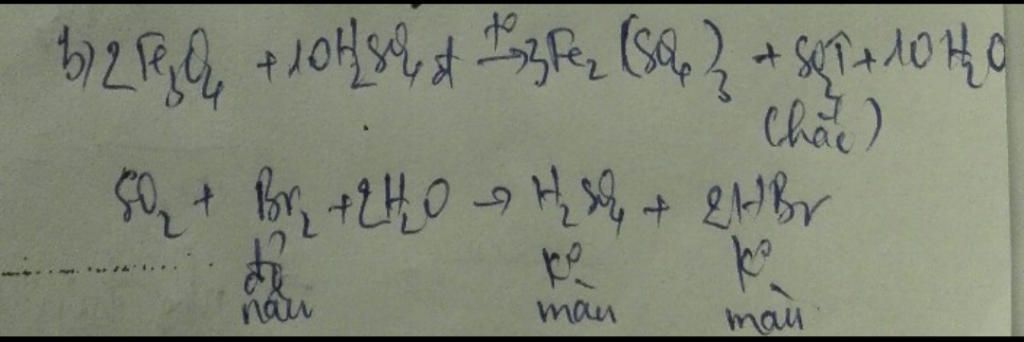 b) 2Fe₃O₄ + 10H₂SO₄ đ t⁰→ 3Fe₂(SO₄)₃ + SO₂↑ + 10H₂O
(hắc)
SO₂ + Br₂ + 2H₂O → H₂SO₄ + 2HBr
đỏ k⁰ k⁰
nâu màu màu